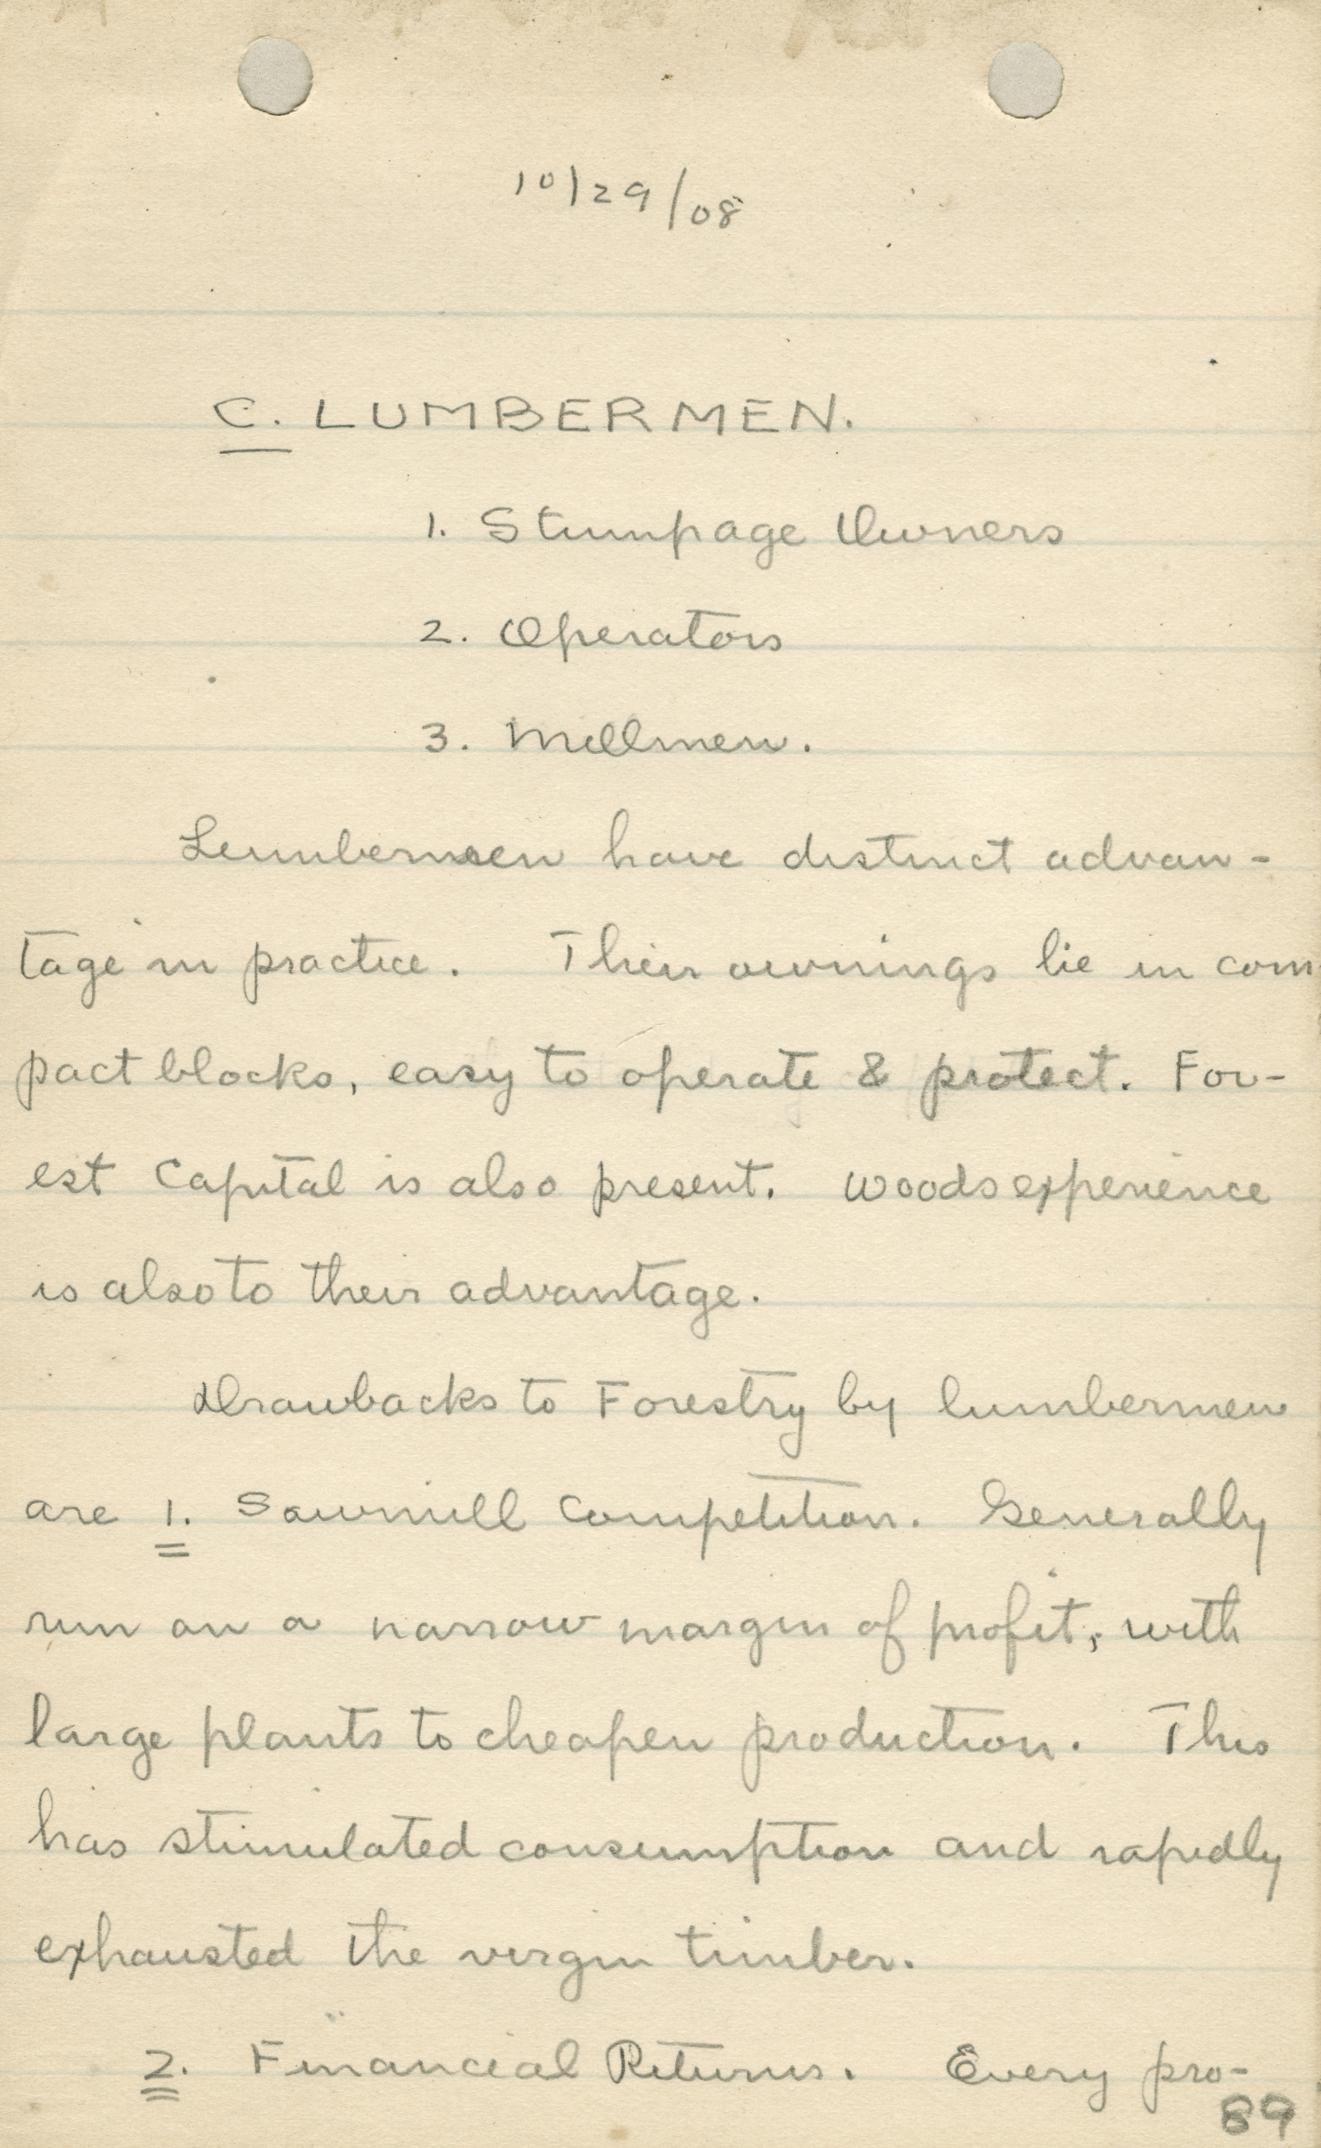 10/29/08
C. LUMBERMEN.
1. Stumpage Owners
2. Operators
3. Millmen.
Lumbermen have distinct advan-
tage in practice. Their ownings lie in com
pact blocks, easy to operate & protect. For-
est Capital is also present. Woods experience
is also to their advantage.
Drawbacks to Forestry by lumbermen
are 1. Sawmill Competition. Generally
run on a narrow margin of profit, with
large plants to cheapen production. This
has stimulated consumption and rapidly
exhausted the virgin timber.
2. Financial Returns. Every pro-
89